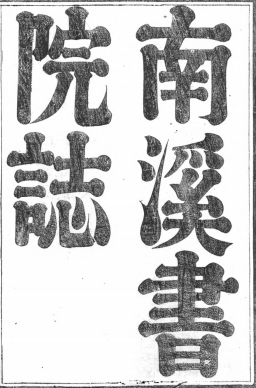 南溪書
院誌